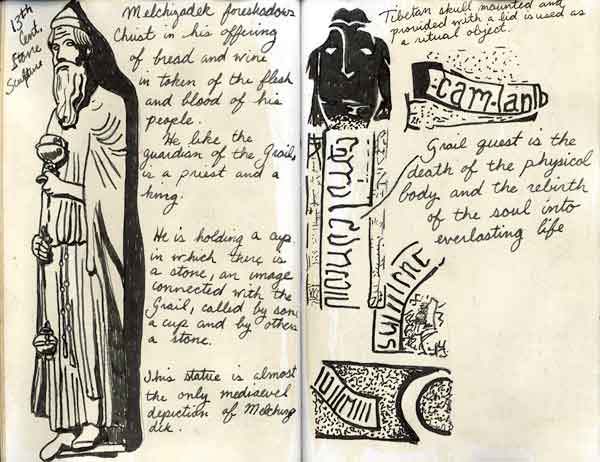 13th
Cent.
Stone
Sculpture
Melchizadek foreshadows
Christ in his offering
of bread and wine
in token of the flesh
and blood of his
people.
He like the
guardian of the Grail,
is a priest and a
king.
He is holding a cup
in which there is
a stone, an image
connected with the
Grail, called by some
a cup and by others
a stone.
This statue is almost
the only mediaeval
depiction of Melchizadek.
Tibetan skull mounted and
provided with a lid is used as
a ritual object.
cam-lan
Grail quest is the
death of the physical
body and the rebirth
of the soul into
everlasting life